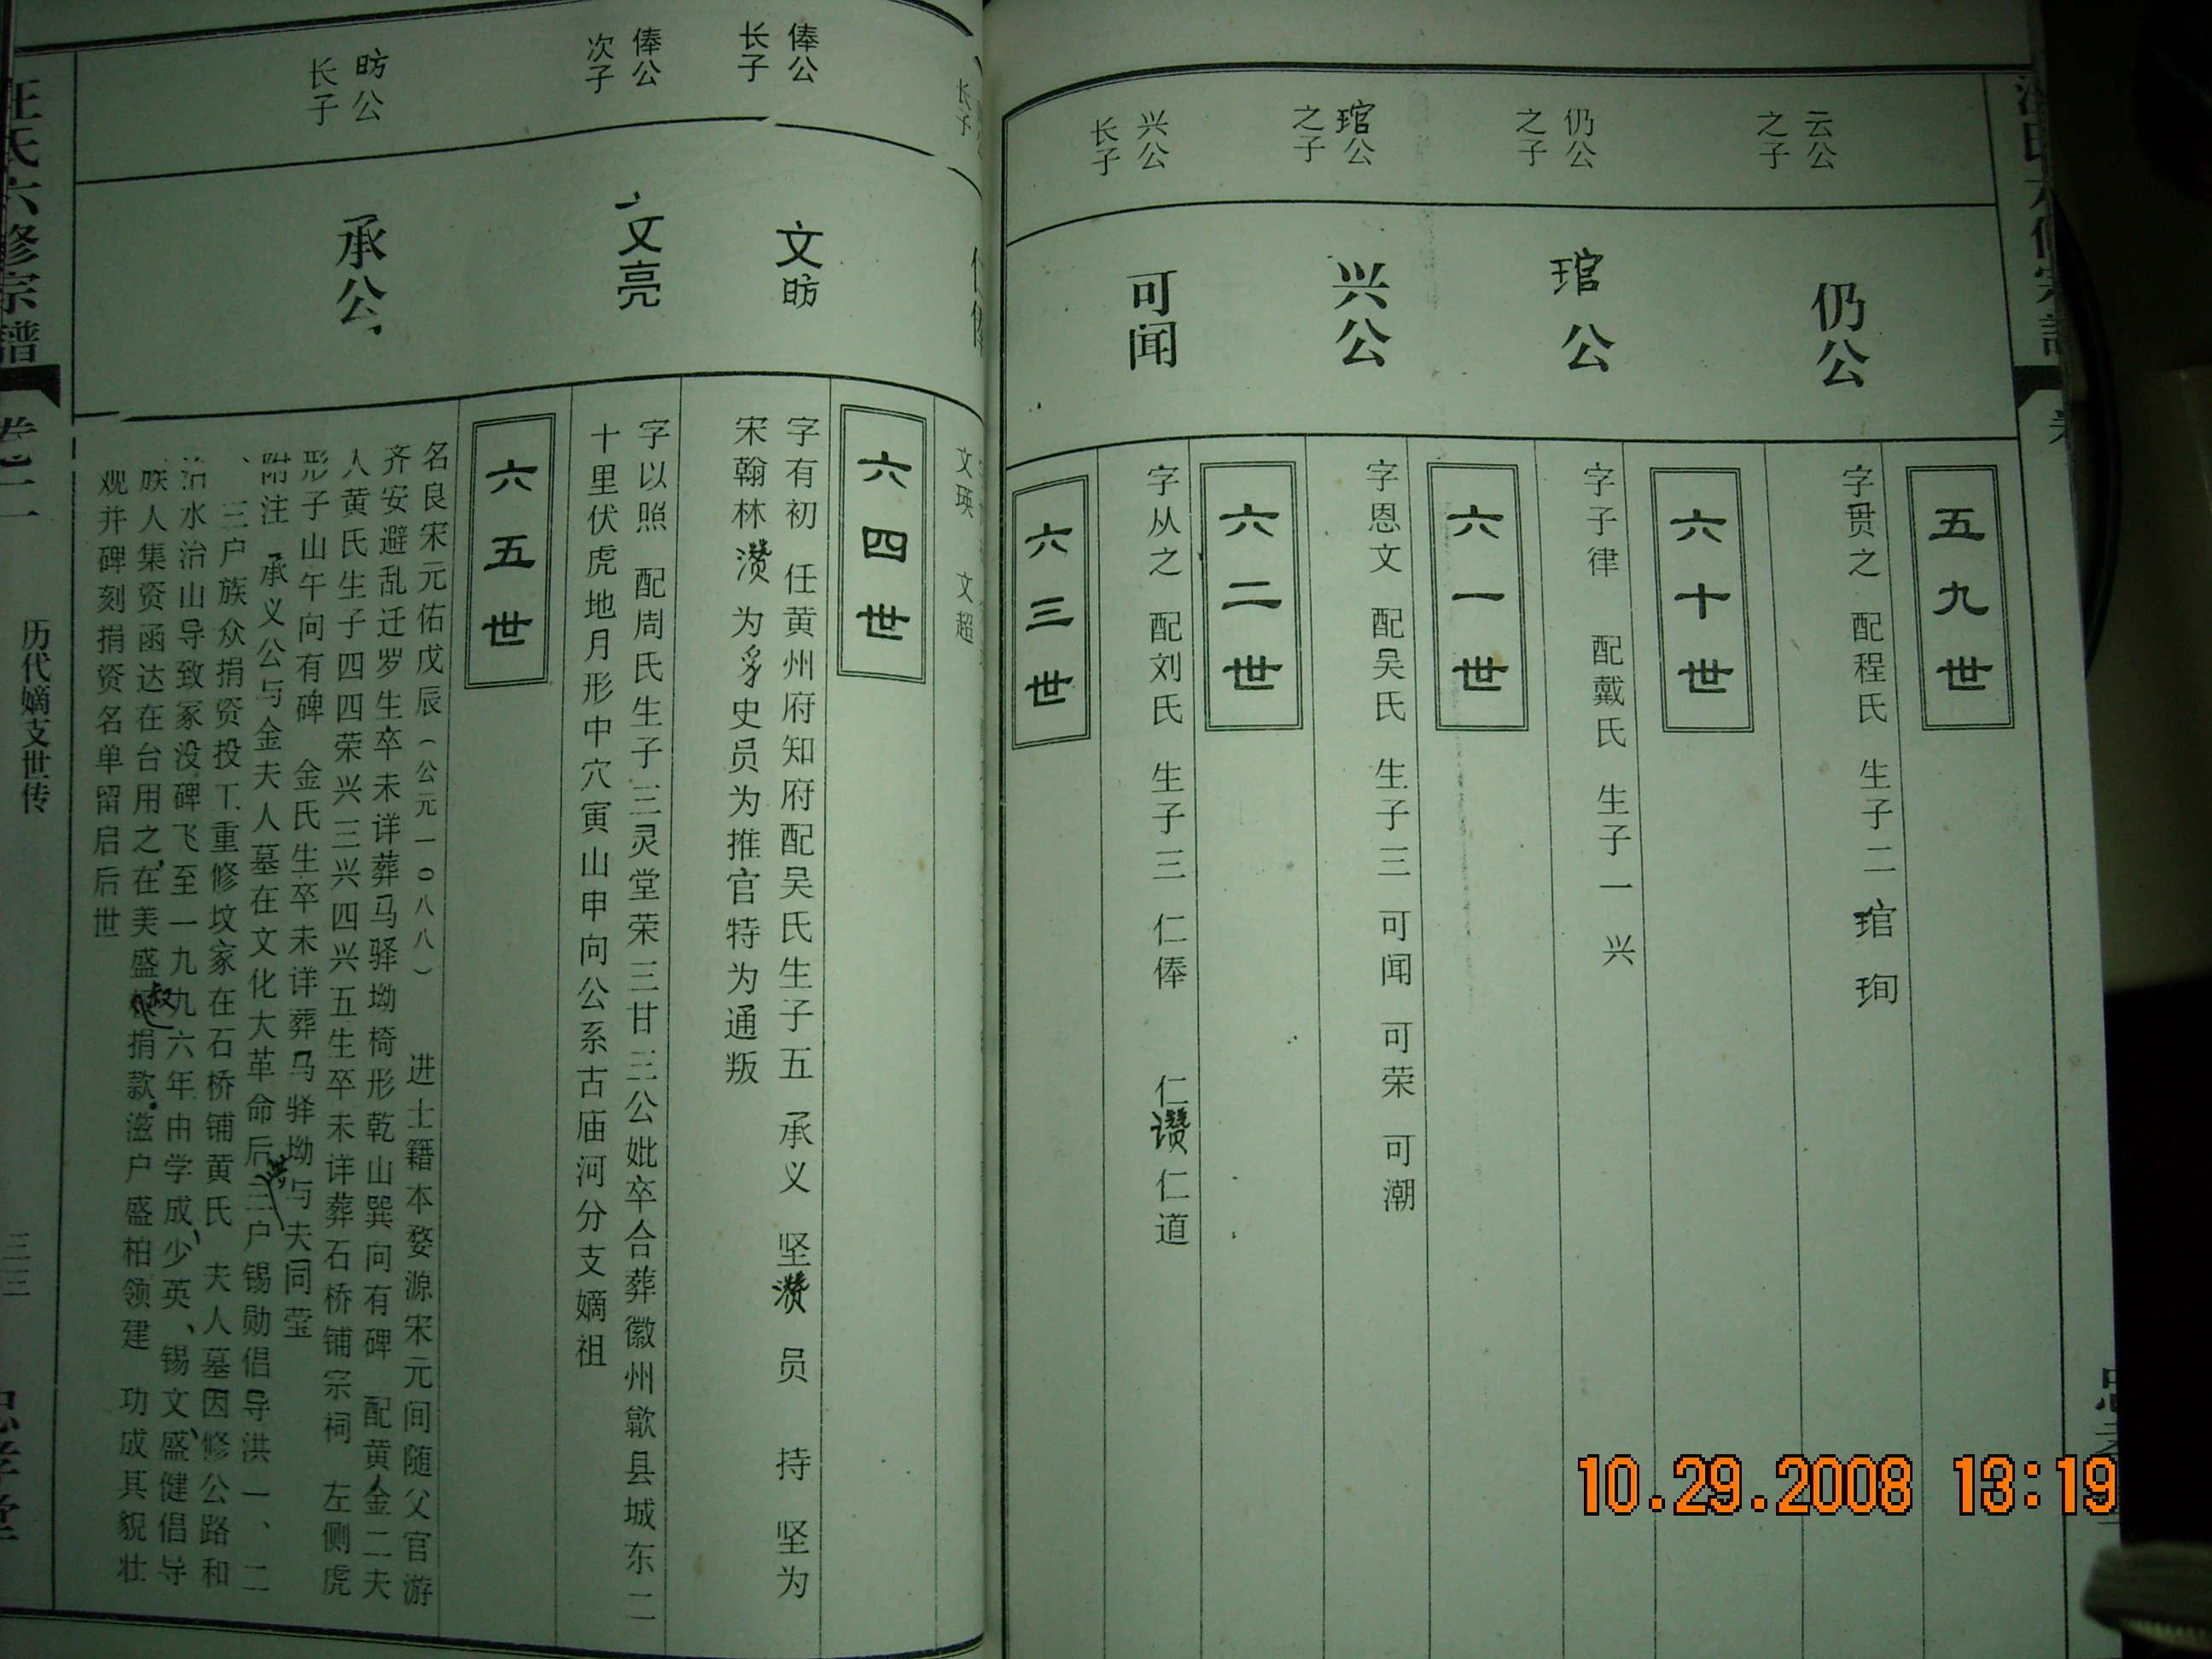 五九世
云公
之子
仍公
字贯之 配程氏 生子二 琯 珣
六十世
仍公
之子
琯公
字子律 配戴氏 生子一 兴
六一世
琯公
之子
兴公
字恩文 配吴氏 生子三 可闻 可荣 可潮
六二世
兴公
长子
可闻
字从之 配刘氏 生子三 仁俸 仁讚 仁道
六三世
长子
文瑛 文超
六四世
俸公
长子
文昉
字有初 任黄州府知府配吴氏生子五 承义 坚瓒 员 持 坚为
宋翰林瓒为 史员为推官特为通叛
俸公
次子
文亮
字以照 配周氏生子三灵堂荣三甘三公妣卒合葬徽州歙县城东二
十里伏虎地月形中穴寅山申向公系古庙河分支嫡祖
六五世
昉公
长子
承公
名良宋元佑戊辰(公元一〇八八) 进士籍本婺源宋元间随父官游
齐安避乱迁罗生卒未详葬马驿坳椅形乾山巽向有碑 配黄金二夫
人黄氏生子四四荣兴三兴四兴五生卒未详葬石桥铺宗祠 左侧虎
形子山午向有碑 金氏生卒未详葬马驿坳与夫同莹
附注 承义公与金夫人墓在文化大革命后三户锡勋倡导洪一、二
、三户族众捐资投工重修坟家在石桥铺黄氏 夫人墓因修公路和
治水治山导致冢没碑飞至一九九六年由学成、少英、锡文、盛健倡导
族人集资函达在台用之,在美盛 捐款滋户盛柏领建 功成其貌壮
观并碑刻捐资名单留启后世
汪氏六修宗谱
卷二
历代嫡支世传
三三
10.29.2008 13:19